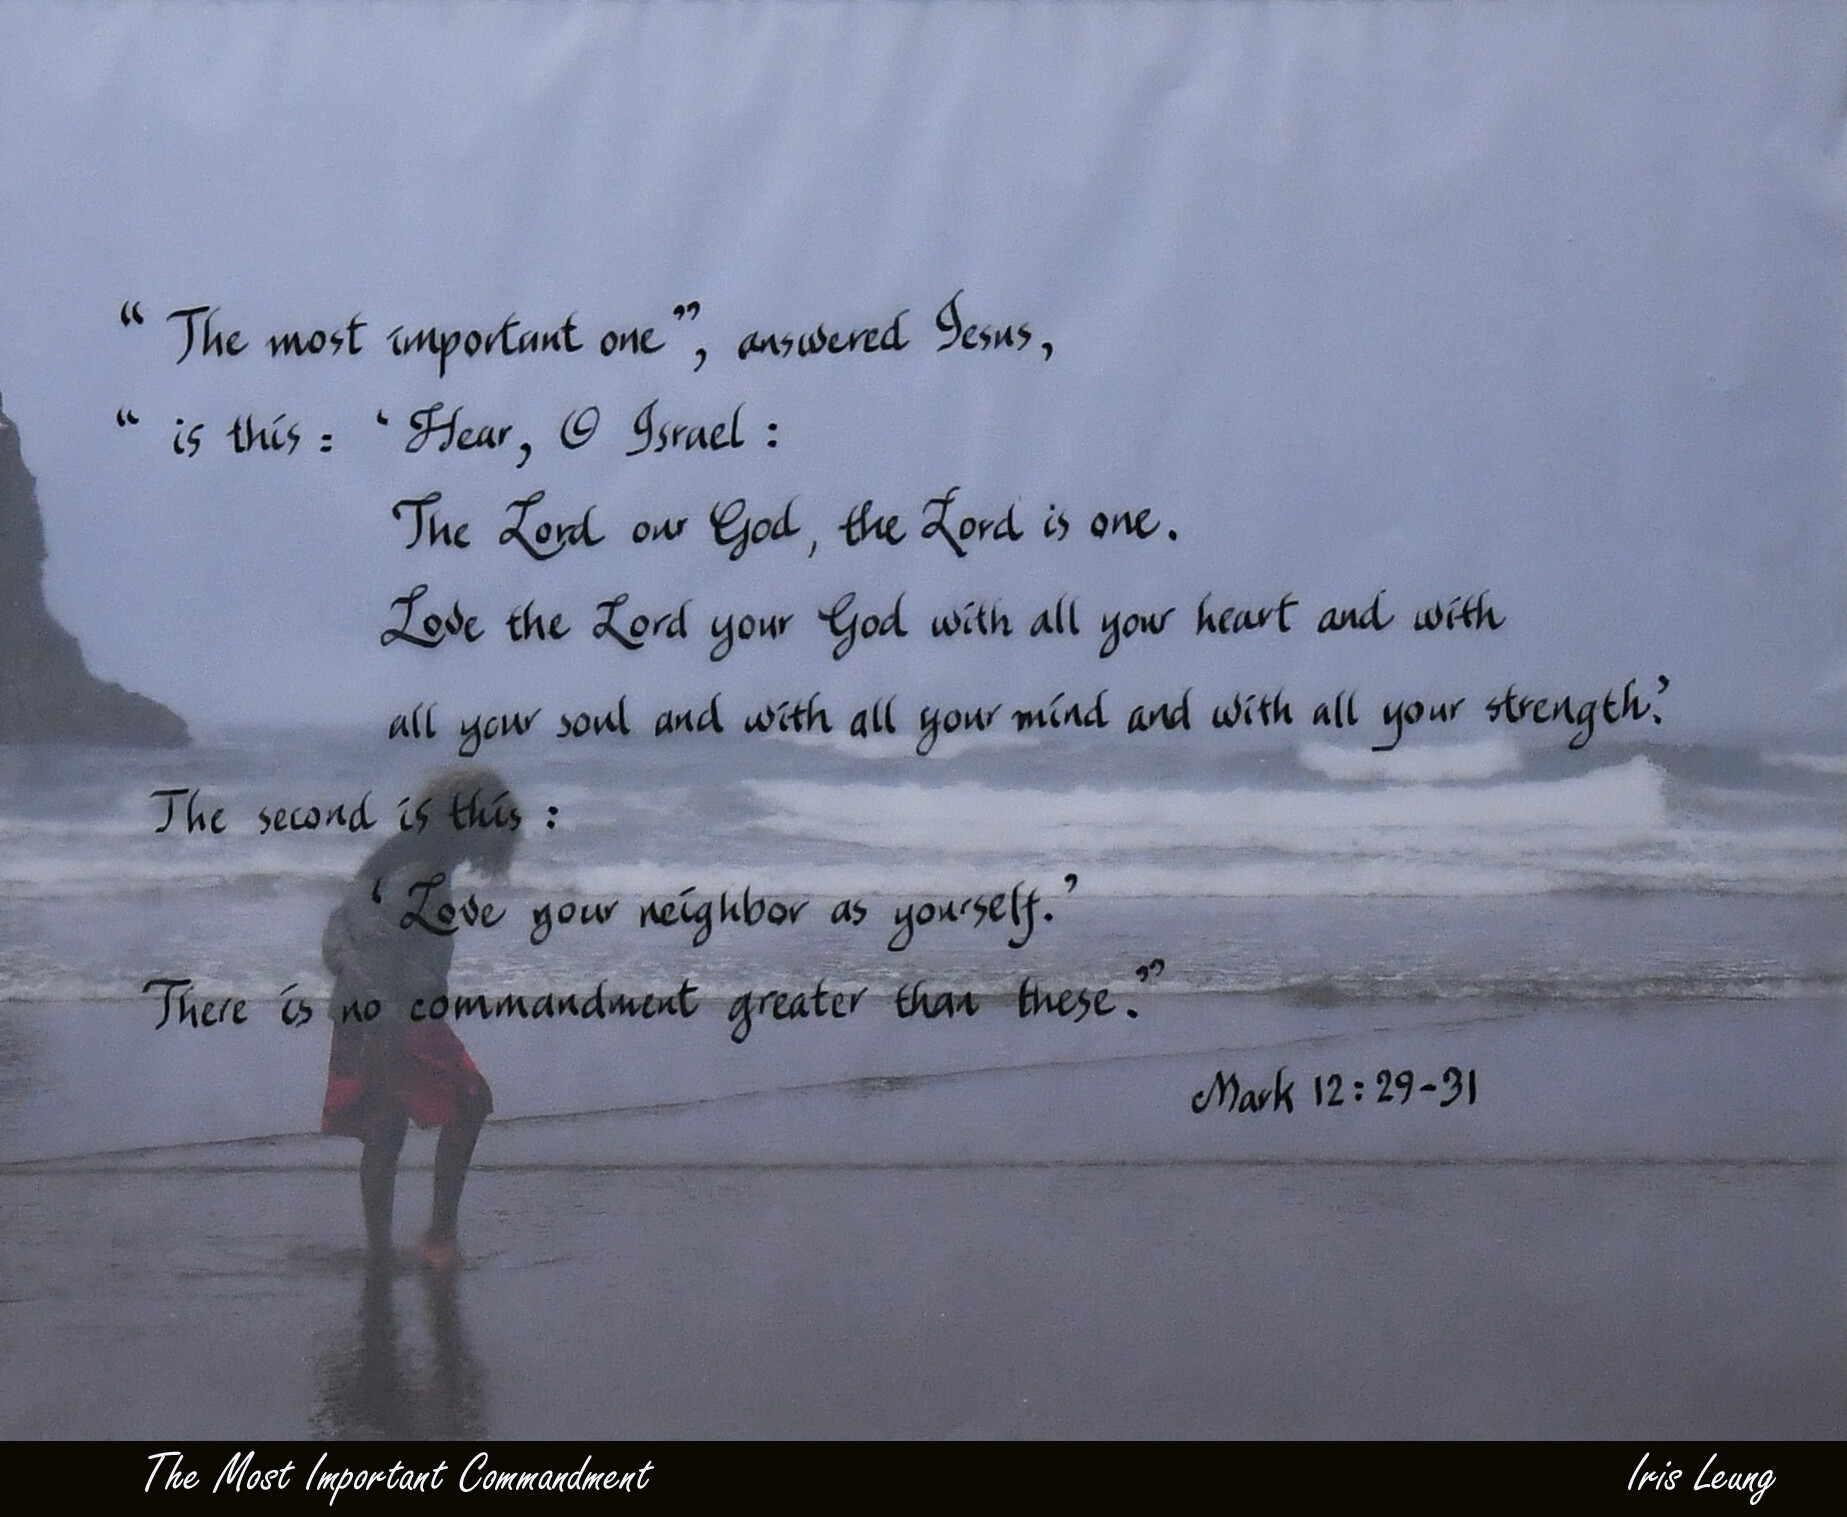 “The most important one”, answered Jesus,
“is this: ‘Hear, O Israel:
The Lord our God, the Lord is one.
Love the Lord your God with all your heart and with
all your soul and with all your mind and with all your strength.’
The second is this:
‘Love your neighbor as yourself.’
There is no commandment greater than these.”
Mark 12:29-31
The Most Important Commandment
Iris Leung